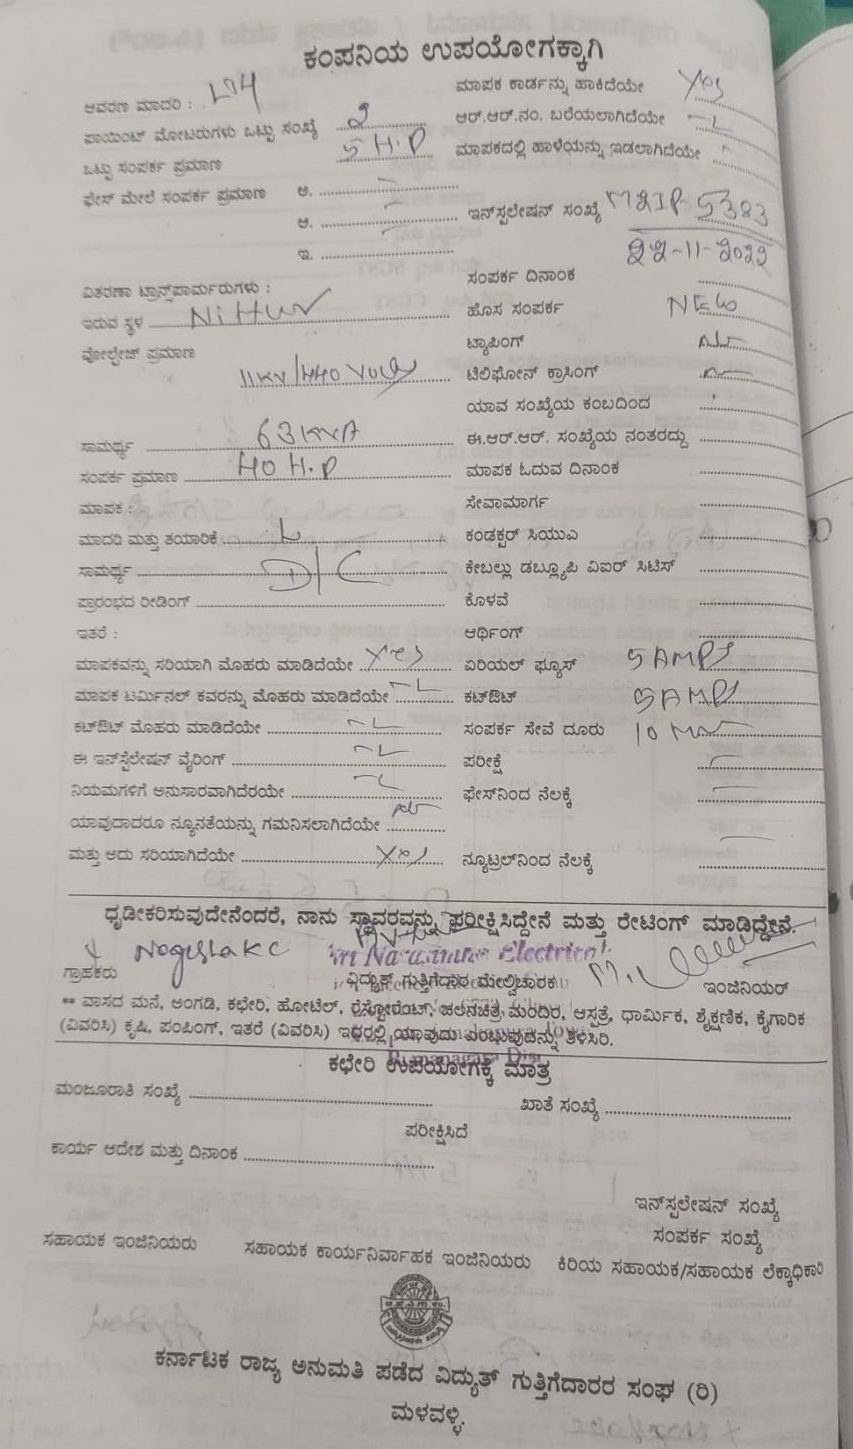 ಕಂಪನಿಯ ಉಪಯೋಗಕ್ಕಾಗಿ
ಆವರಣ ಮಾದರಿ : ಮಾಪಕ ಕಾರ್ಡನ್ನು ಹಾಕಿದೆಯೇ Yes
ಪಾಯಿಂಟ್ ಮೋಟರುಗಳು ಒಟ್ಟು ಸಂಖ್ಯೆ 2 ಆರ್.ಆರ್.ನಂ. ಬರೆಯಲಾಗಿದೆಯೇ
ಒಟ್ಟು ಸಂಪರ್ಕ ಪ್ರಮಾಣ 5 H.P ಮಾಪಕದಲ್ಲಿ ಹಾಳೆಯನ್ನು ಇಡಲಾಗಿದೆಯೇ
ಫೇಸ್ ಮೇಲೆ ಸಂಪರ್ಕ ಪ್ರಮಾಣ ಅ.
ಆ. ಇನ್‌ಸ್ಪಲೇಷನ್ ಸಂಖ್ಯೆ 5383
ಇ. 22-11-2022
ಸಂಪರ್ಕ ದಿನಾಂಕ
ವಿತರಣಾ ಟ್ರಾನ್ಸ್‌ಪಾರ್ಮರುಗಳು :
ಇರುವ ಸ್ಥಳ NiTTUR ಹೊಸ ಸಂಪರ್ಕ NEW
ವೋಲ್ಟೇಜ್ ಪ್ರಮಾಣ ಟ್ಯಾಪಿಂಗ್
11KV/440 Volt ಟೆಲಿಫೋನ್ ಕ್ರಾಸಿಂಗ್
ಯಾವ ಸಂಖ್ಯೆಯ ಕಂಬದಿಂದ
ಸಾಮರ್ಥ್ಯ 63 KVA ಈ.ಆರ್.ಆರ್. ಸಂಖ್ಯೆಯ ನಂತರದ್ದು
ಸಂಪರ್ಕ ಪ್ರಮಾಣ 40 H.P ಮಾಪಕ ಓದುವ ದಿನಾಂಕ
ಮಾಪಕ : ಸೇವಾಮಾರ್ಗ
ಮಾದರಿ ಮತ್ತು ತಯಾರಿಕೆ ಕಂಡಕ್ಟರ್ ಸಿಯುಎ
ಸಾಮರ್ಥ್ಯ D/C ಕೇಬಲ್ಲು ಡಬ್ಲ್ಯೂಪಿ ವಿಐರ್ ಸಿಟಿಸ್
ಪ್ರಾರಂಭದ ರೀಡಿಂಗ್ ಕೊಳವೆ
ಇತರೆ : ಆರ್ಥಿಂಗ್
ಮಾಪಕವನ್ನು ಸರಿಯಾಗಿ ಮೊಹರು ಮಾಡಿದೆಯೇ Yes ಏರಿಯಲ್ ಫ್ಯೂಸ್ 5 AMPS
ಮಾಪಕ ಟರ್ಮಿನಲ್ ಕವರನ್ನು ಮೊಹರು ಮಾಡಿದೆಯೇ ಕಟ್‌ಔಟ್ 5 AMPS
ಕಟ್‌ಔಟ್ ಮೊಹರು ಮಾಡಿದೆಯೇ ಸಂಪರ್ಕ ಸೇವೆ ದೂರು 10
ಈ ಇನ್‌ಸ್ಪೆಲೇಷನ್ ವೈರಿಂಗ್ ಪರೀಕ್ಷೆ
ನಿಯಮಗಳಿಗೆ ಅನುಸಾರವಾಗಿದೆರಯೇ ಫೇಸ್‌ನಿಂದ ನೆಲಕ್ಕೆ
ಯಾವುದಾದರೂ ನ್ಯೂನತೆಯನ್ನು ಗಮನಿಸಲಾಗಿದೆಯೇ
ಮತ್ತು ಅದು ಸರಿಯಾಗಿದೆಯೇ Yes ನ್ಯೂಟ್ರಲ್‌ನಿಂದ ನೆಲಕ್ಕೆ
ಧೃಡೀಕರಿಸುವುದೇನೆಂದರೆ, ನಾನು ಸ್ಥಾವರವನ್ನು ಪರೀಕ್ಷಿಸಿದ್ದೇನೆ ಮತ್ತು ರೇಟಿಂಗ್ ಮಾಡಿದ್ದೇನೆ.
Sri Narasimha Electrical
ಗ್ರಾಹಕರು ವಿದ್ಯುತ್ ಗುತ್ತಿಗೆದಾರ ಮೇಲ್ವಿಚಾರಕ ಇಂಜಿನಿಯರ್
** ವಾಸದ ಮನೆ, ಅಂಗಡಿ, ಕಛೇರಿ, ಹೋಟೆಲ್, ರೆಸ್ಟೋರೆಂಟ್, ಚಲನಚಿತ್ರ ಮಂದಿರ, ಆಸ್ಪತ್ರೆ, ಧಾರ್ಮಿಕ, ಶೈಕ್ಷಣಿಕ, ಕೈಗಾರಿಕ
(ವಿವರಿಸಿ) ಕೃಷಿ, ಪಂಪಿಂಗ್, ಇತರೆ (ವಿವರಿಸಿ) ಇದರಲ್ಲಿ ಯಾವುದು ಎಂಬುವುದನ್ನು ತಿಳಿಸಿರಿ.
ಕಛೇರಿ ಉಪಯೋಗಕ್ಕೆ ಮಾತ್ರ
ಮಂಜೂರಾತಿ ಸಂಖ್ಯೆ ಖಾತೆ ಸಂಖ್ಯೆ
ಪರೀಕ್ಷಿಸಿದೆ
ಕಾರ್ಯ ಆದೇಶ ಮತ್ತು ದಿನಾಂಕ
ಇನ್‌ಸ್ಪಲೇಷನ್ ಸಂಖ್ಯೆ
ಸಂಪರ್ಕ ಸಂಖ್ಯೆ
ಸಹಾಯಕ ಇಂಜಿನಿಯರು ಸಹಾಯಕ ಕಾರ್ಯನಿರ್ವಾಹಕ ಇಂಜಿನಿಯರು ಕಿರಿಯ ಸಹಾಯಕ/ಸಹಾಯಕ ಲೆಕ್ಕಾಧಿಕಾರಿ
ಕರ್ನಾಟಕ ರಾಜ್ಯ ಅನುಮತಿ ಪಡೆದ ವಿದ್ಯುತ್ ಗುತ್ತಿಗೆದಾರರ ಸಂಘ (ರಿ)
ಮಳವಳ್ಳಿ.